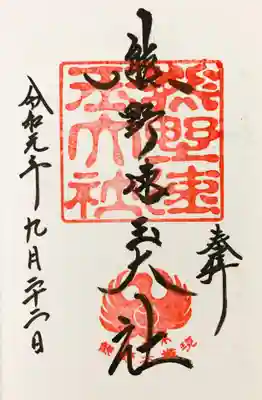 奉拝
熊野速玉大社
令和元年九月二十二日
熊野速
玉大社